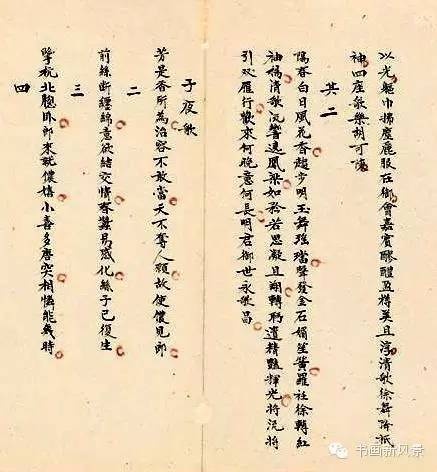 以光軀巾拂塵麗服在御會嘉賓醪醴盈樽美且淳清歌徐舞降祇
神四座歡樂胡可陳
其二
陽春白日風花香趨步明玉舞瑤璫聲發金石媚笙簧羅袿徐轉紅
袖揚清歌流響遶鳳梁如矜若思凝且翔轉盻遺精艷輝光將流將
引双雁行歡來何晚意何長明君御世永歌昌
子夜歌
芳是香所為冶容不敢當天不奪人願故使儂見郎
二
前絲斷纏綿意欲結交情春蠶易感化絲子已復生
三
擥枕北牕卧郎來就儂嬉小喜多唐突相憐能幾時
四
书画新风景